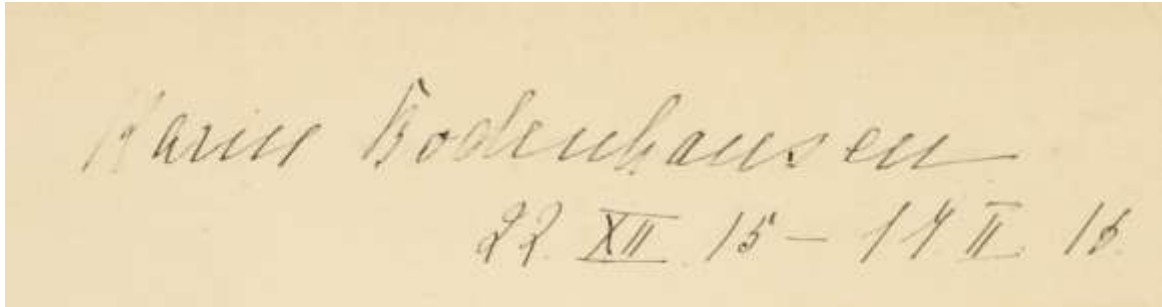 Karin Bodenhausen
22. XII. 15 – 14 II. 16.